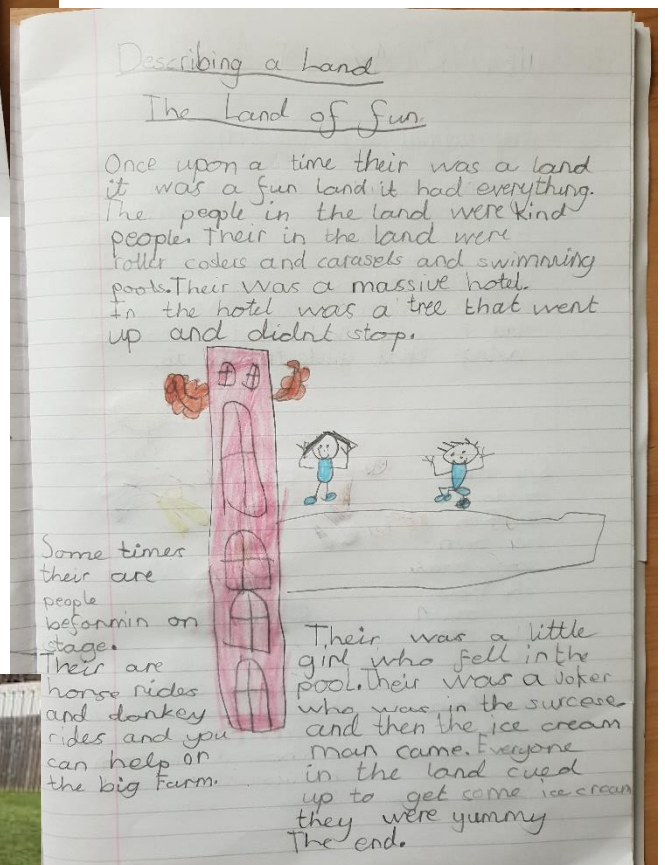 Describing a Land
The Land of fun.
Once upon a time their was a land
it was a fun land it had everything.
The people in the land were kind
people. Their in the land were
roller coders and carasels and swimming
pools. Their was a massive hotel.
In the hotel was a tree that went
up and didnt stop.
Some times
their are
people
befonmin on
stage.
Their are
horse rides
and donkey
rides and you
can help on
the big farm.
Their was a little
girl who fell in the
pool. Their was a Joker
who was in the surcese
and then the ice cream
man came. Everyone
in the land cued
up to get some ice cream
they were yummy
The end.